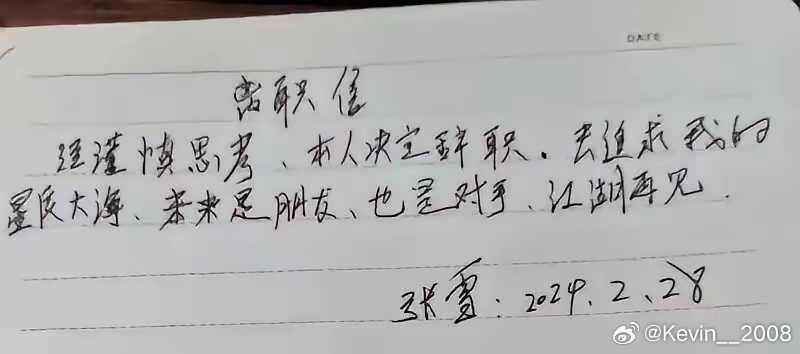 DATE
离职信
经谨慎思考、本人决定辞职。去追求我的
星辰大海、未来是朋友、也是对手、江湖再见.
张雪：2024.2、28
@Kevin__2008